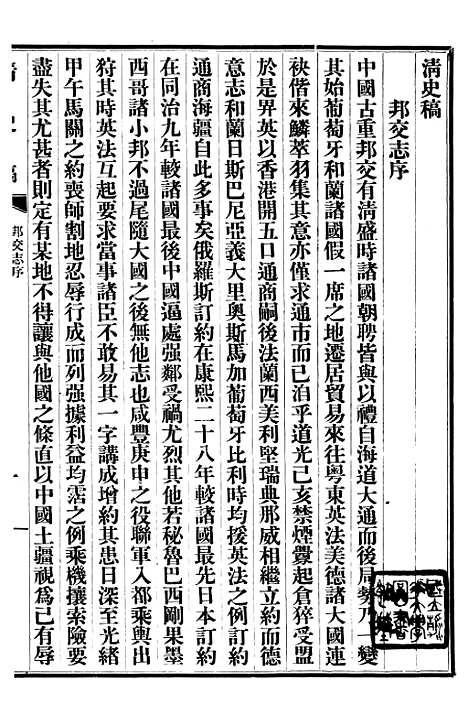 清史稿
邦交志序
中國古重邦交有清盛時諸國朝聘皆與以禮自海道大通而後局勢乃一變
其始葡萄牙和蘭諸國假一席之地遷居貿易來往粤東英法美德諸大國連
袂偕來鱗萃羽集其意亦僅求通市而已洎乎道光己亥禁煙釁起倉猝受盟
於是畀英以香港開五口通商嗣後法蘭西美利堅瑞典那威相繼立約而德
意志和蘭日斯巴尼亞義大里奥斯馬加葡萄牙比利時均援英法之例訂約
通商海疆自此多事矣俄羅斯訂約在康熙二十八年較諸國最先日本訂約
在同治九年較諸國最後中國逼處强鄰受禍尤烈其他若秘魯巴西剛果墨
西哥諸小邦不過尾隨大國之後無他志也咸豐庚申之役聯軍入都乘輿出
狩其時英法互起要求當事諸臣不敢易其一字講成增約其患日深至光緒
甲午馬關之約喪師割地忍辱行成而列强據利益均霑之例乘機攘索險要
盡失其尤甚者則定有某地不得讓與他國之條直以中國土疆視爲己有辱
清史稿
邦交志序
一